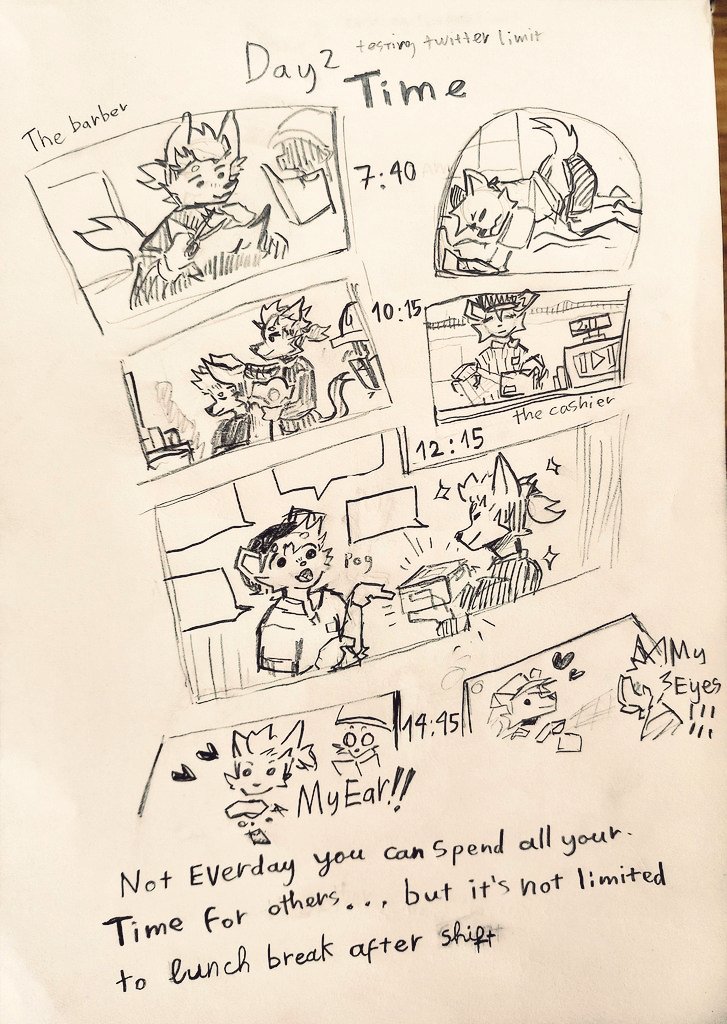 Day2 testing twitter limit
Time
The barber
7:40
10:15
the cashier
12:15
Pog
14:45
My
Eyes
!!!
My Ear!!
Not Everday you can spend all your
Time for others... but it's not limited
to lunch break after shift